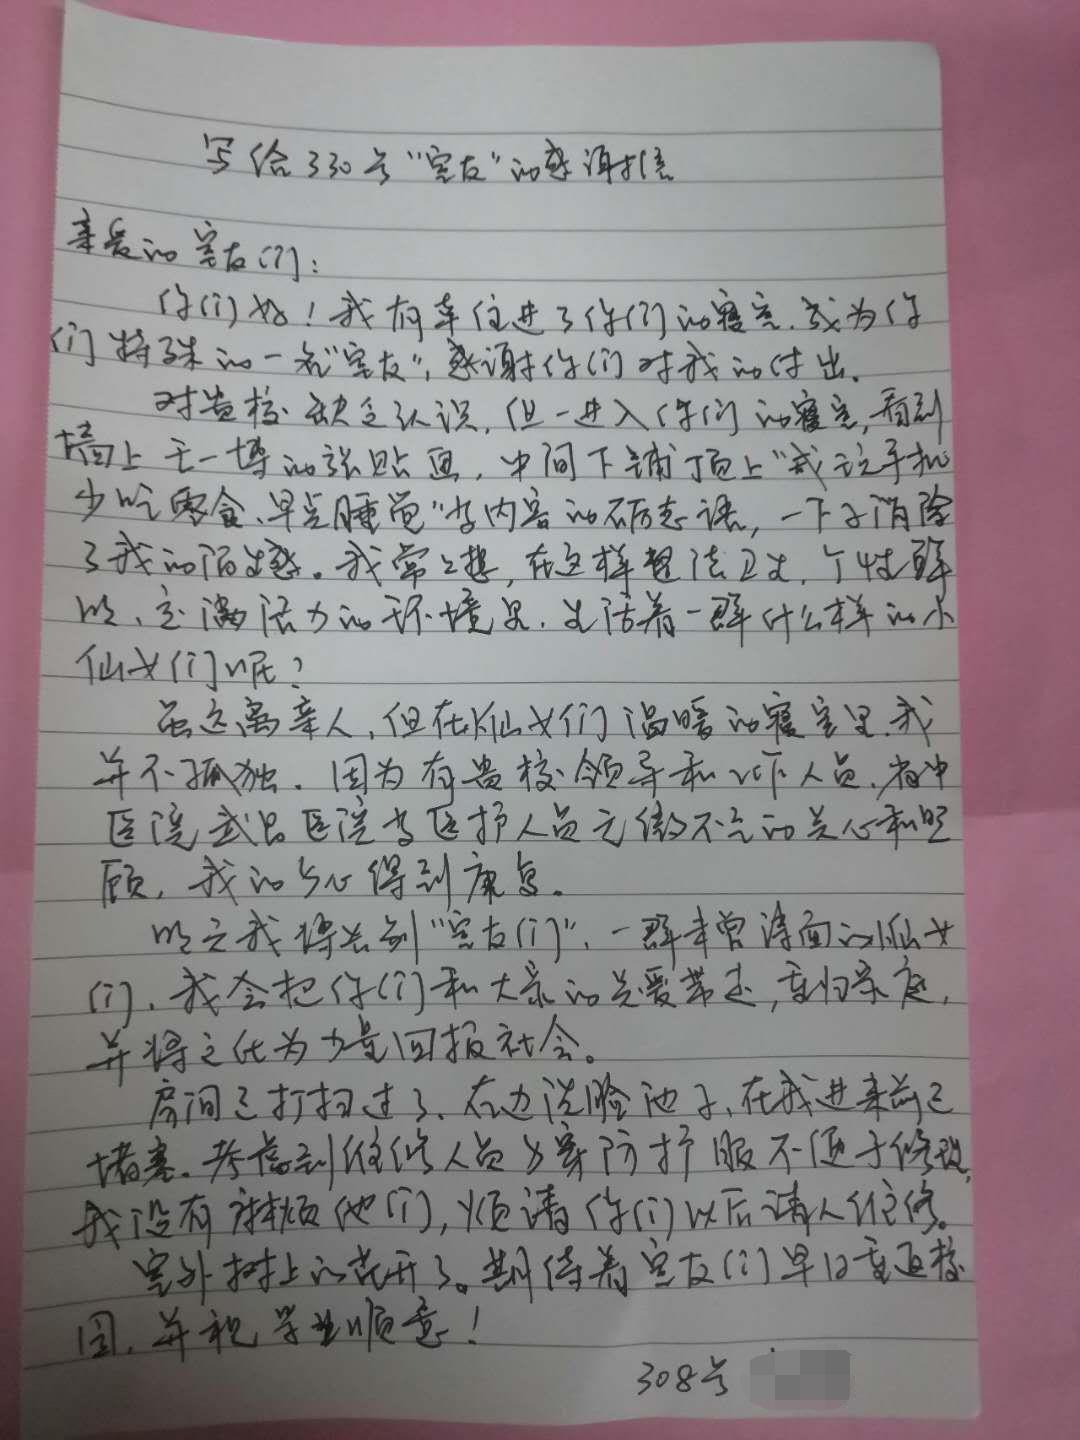 写给330号“室友”的感谢信
亲爱的室友们：
你们好！我有幸住进了你们的寝室，成为你
们特殊的一名“室友”，感谢你们对我的付出。
对贵校缺乏认识，但一进入你们的寝室，看到
墙上的张贴画，中间下铺顶上“戒玩手机
少吃零食、早点睡觉”等内容的励志语，一下子消除
了我的陌生感。我常常想，在这样整洁卫生，个性鲜
明、充满活力的环境里，生活着一群什么样的小
仙女们呢？
虽远离亲人，但在小仙女们温暖的寝室里，我
并不孤独。因为有贵校领导和工作人员，省中
医院武昌医院等医护人员无微不至的关心和照
顾，我的身心得到康复。
明天我将告别“室友们”，一群未曾谋面的小仙女
们，我会把你们和大家的关爱带走，重归家庭，
并将之化为力量回报社会。
房间已打扫过了，右边洗脸池子，在我进来前已
堵塞。考虑到维修人员穿防护服不便于修理，
我没有麻烦他们，烦请你们以后请人维修。
室外树上的花开了。期待着室友们早日重返校
园，并祝学业顺意！
308号